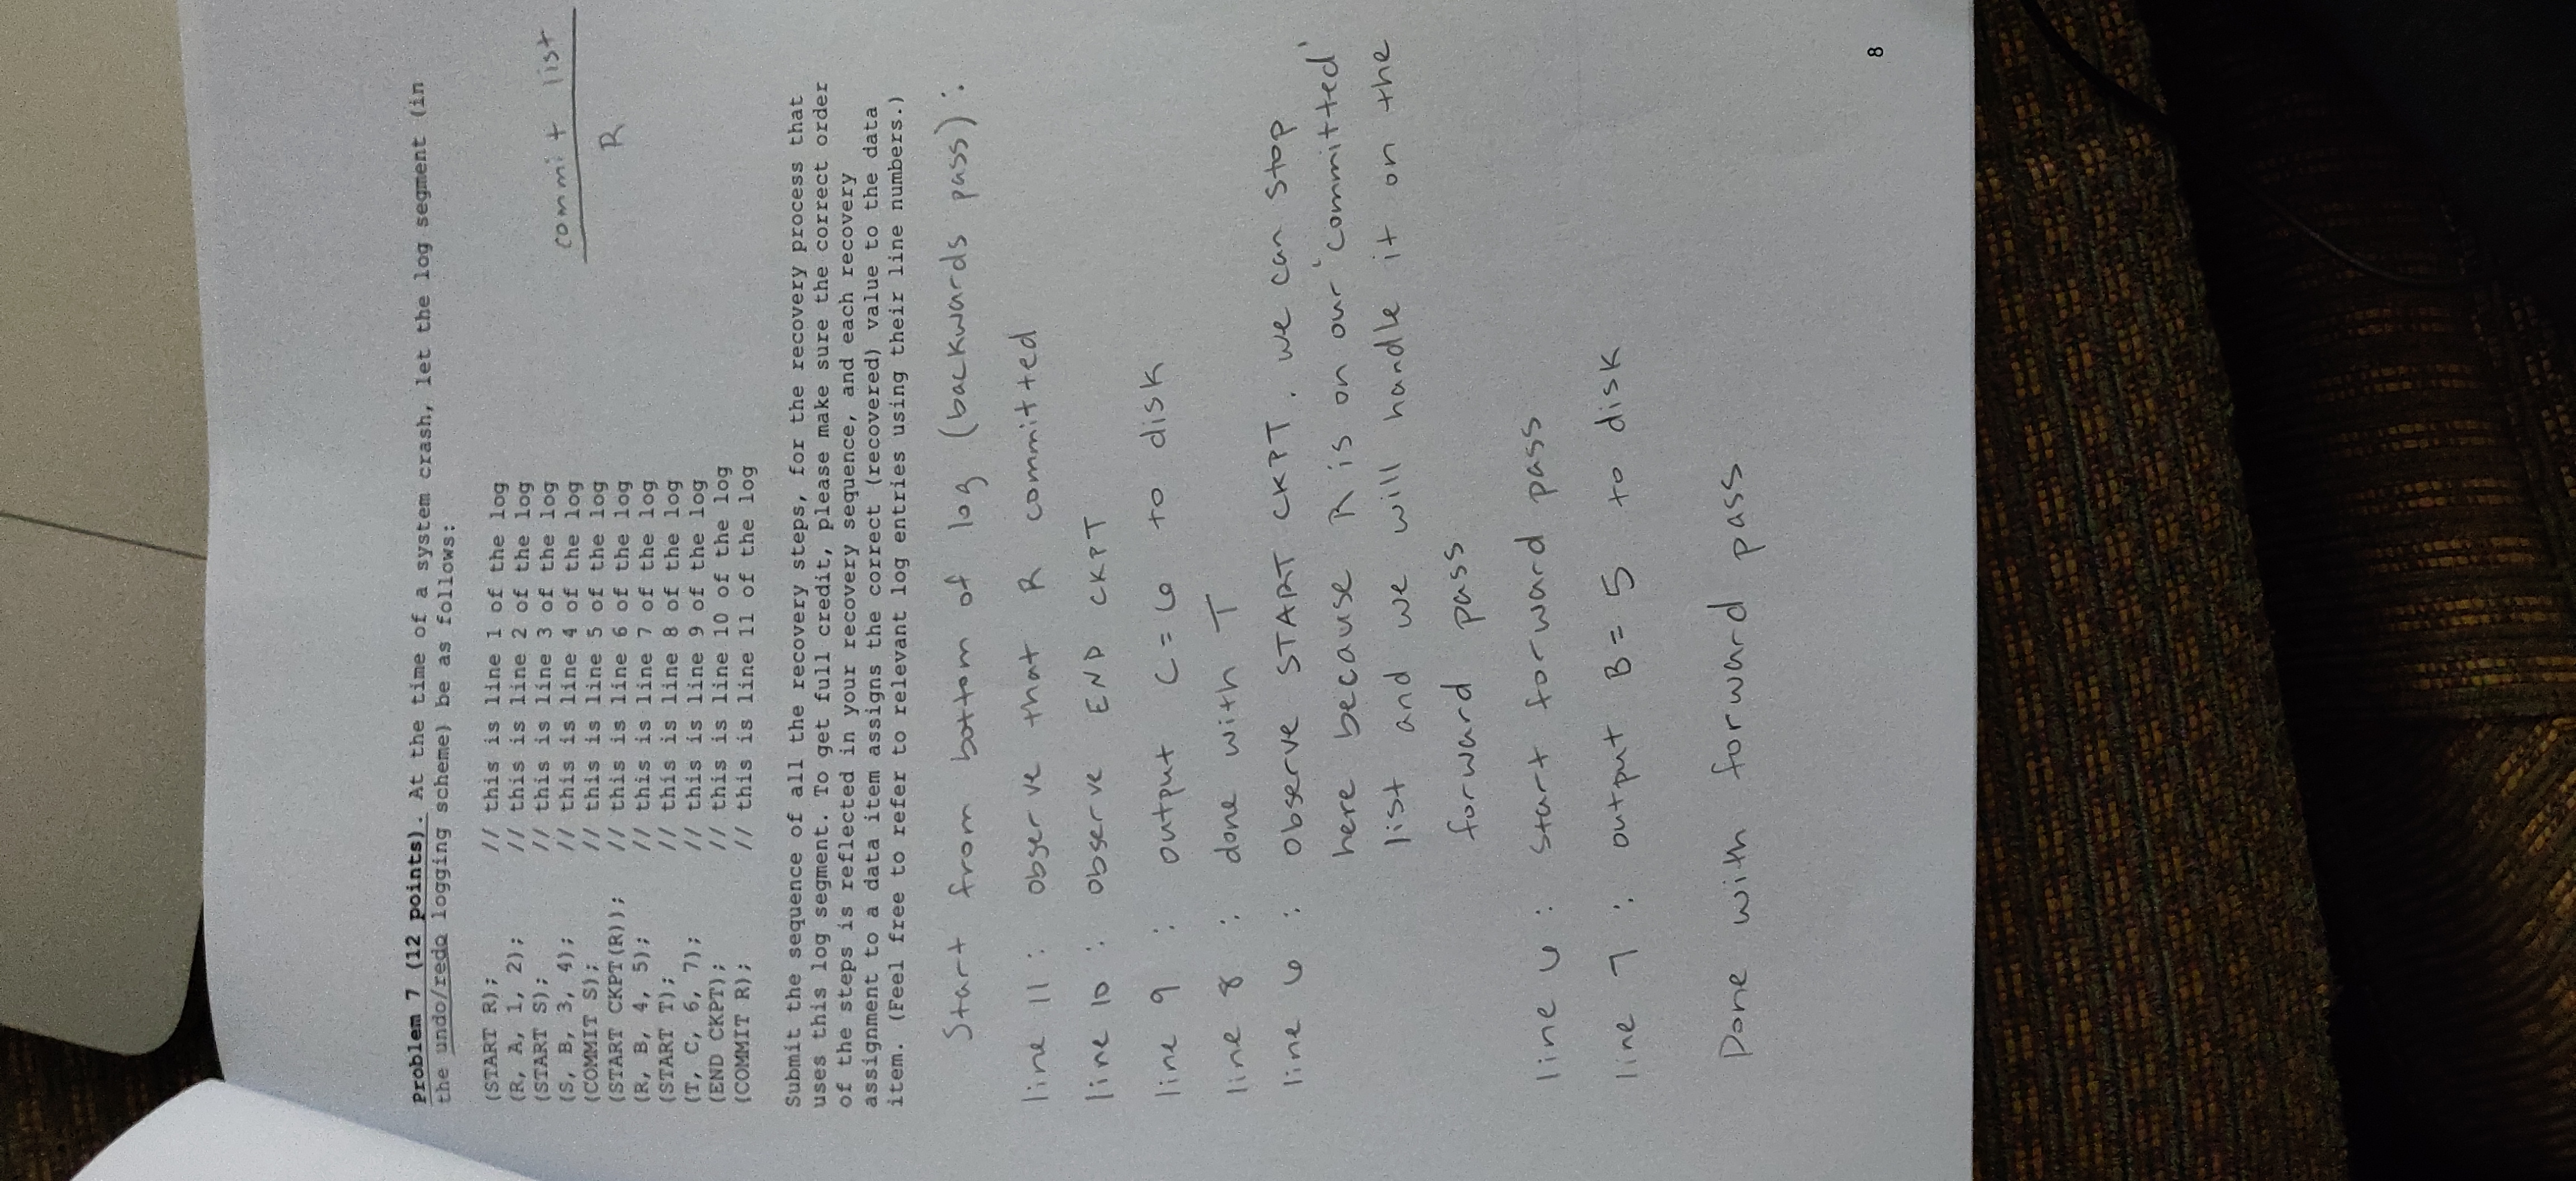 Problem 7 (12 points). At the time of a system crash, let the log segment (in
the undo/redo logging scheme) be as follows:
(START R); // this is line 1 of the log
(R, A, 1, 2); // this is line 2 of the log
(START S); // this is line 3 of the log
(S, B, 3, 4); // this is line 4 of the log
(COMMIT S); // this is line 5 of the log
(START CKPT(R)); // this is line 6 of the log
(R, B, 4, 5); // this is line 7 of the log
(START T); // this is line 8 of the log
(T, C, 6, 7); // this is line 9 of the log
(END CKPT); // this is line 10 of the log
(COMMIT R); // this is line 11 of the log
commit list
R
Submit the sequence of all the recovery steps, for the recovery process that
uses this log segment. To get full credit, please make sure the correct order
of the steps is reflected in your recovery sequence, and each recovery
assignment to a data item assigns the correct (recovered) value to the data
item. (Feel free to refer to relevant log entries using their line numbers.)
Start from bottom of log (backwards pass):
line 11: observe that R committed
line 10: observe END CKPT
line 9: output C=6 to disk
line 8: done with T
line 6: observe START CKPT. we can stop
here because R is on our 'committed'
list and we will handle it on the
forward pass
line 6: start forward pass
line 7: output B=5 to disk
Done with forward pass
8